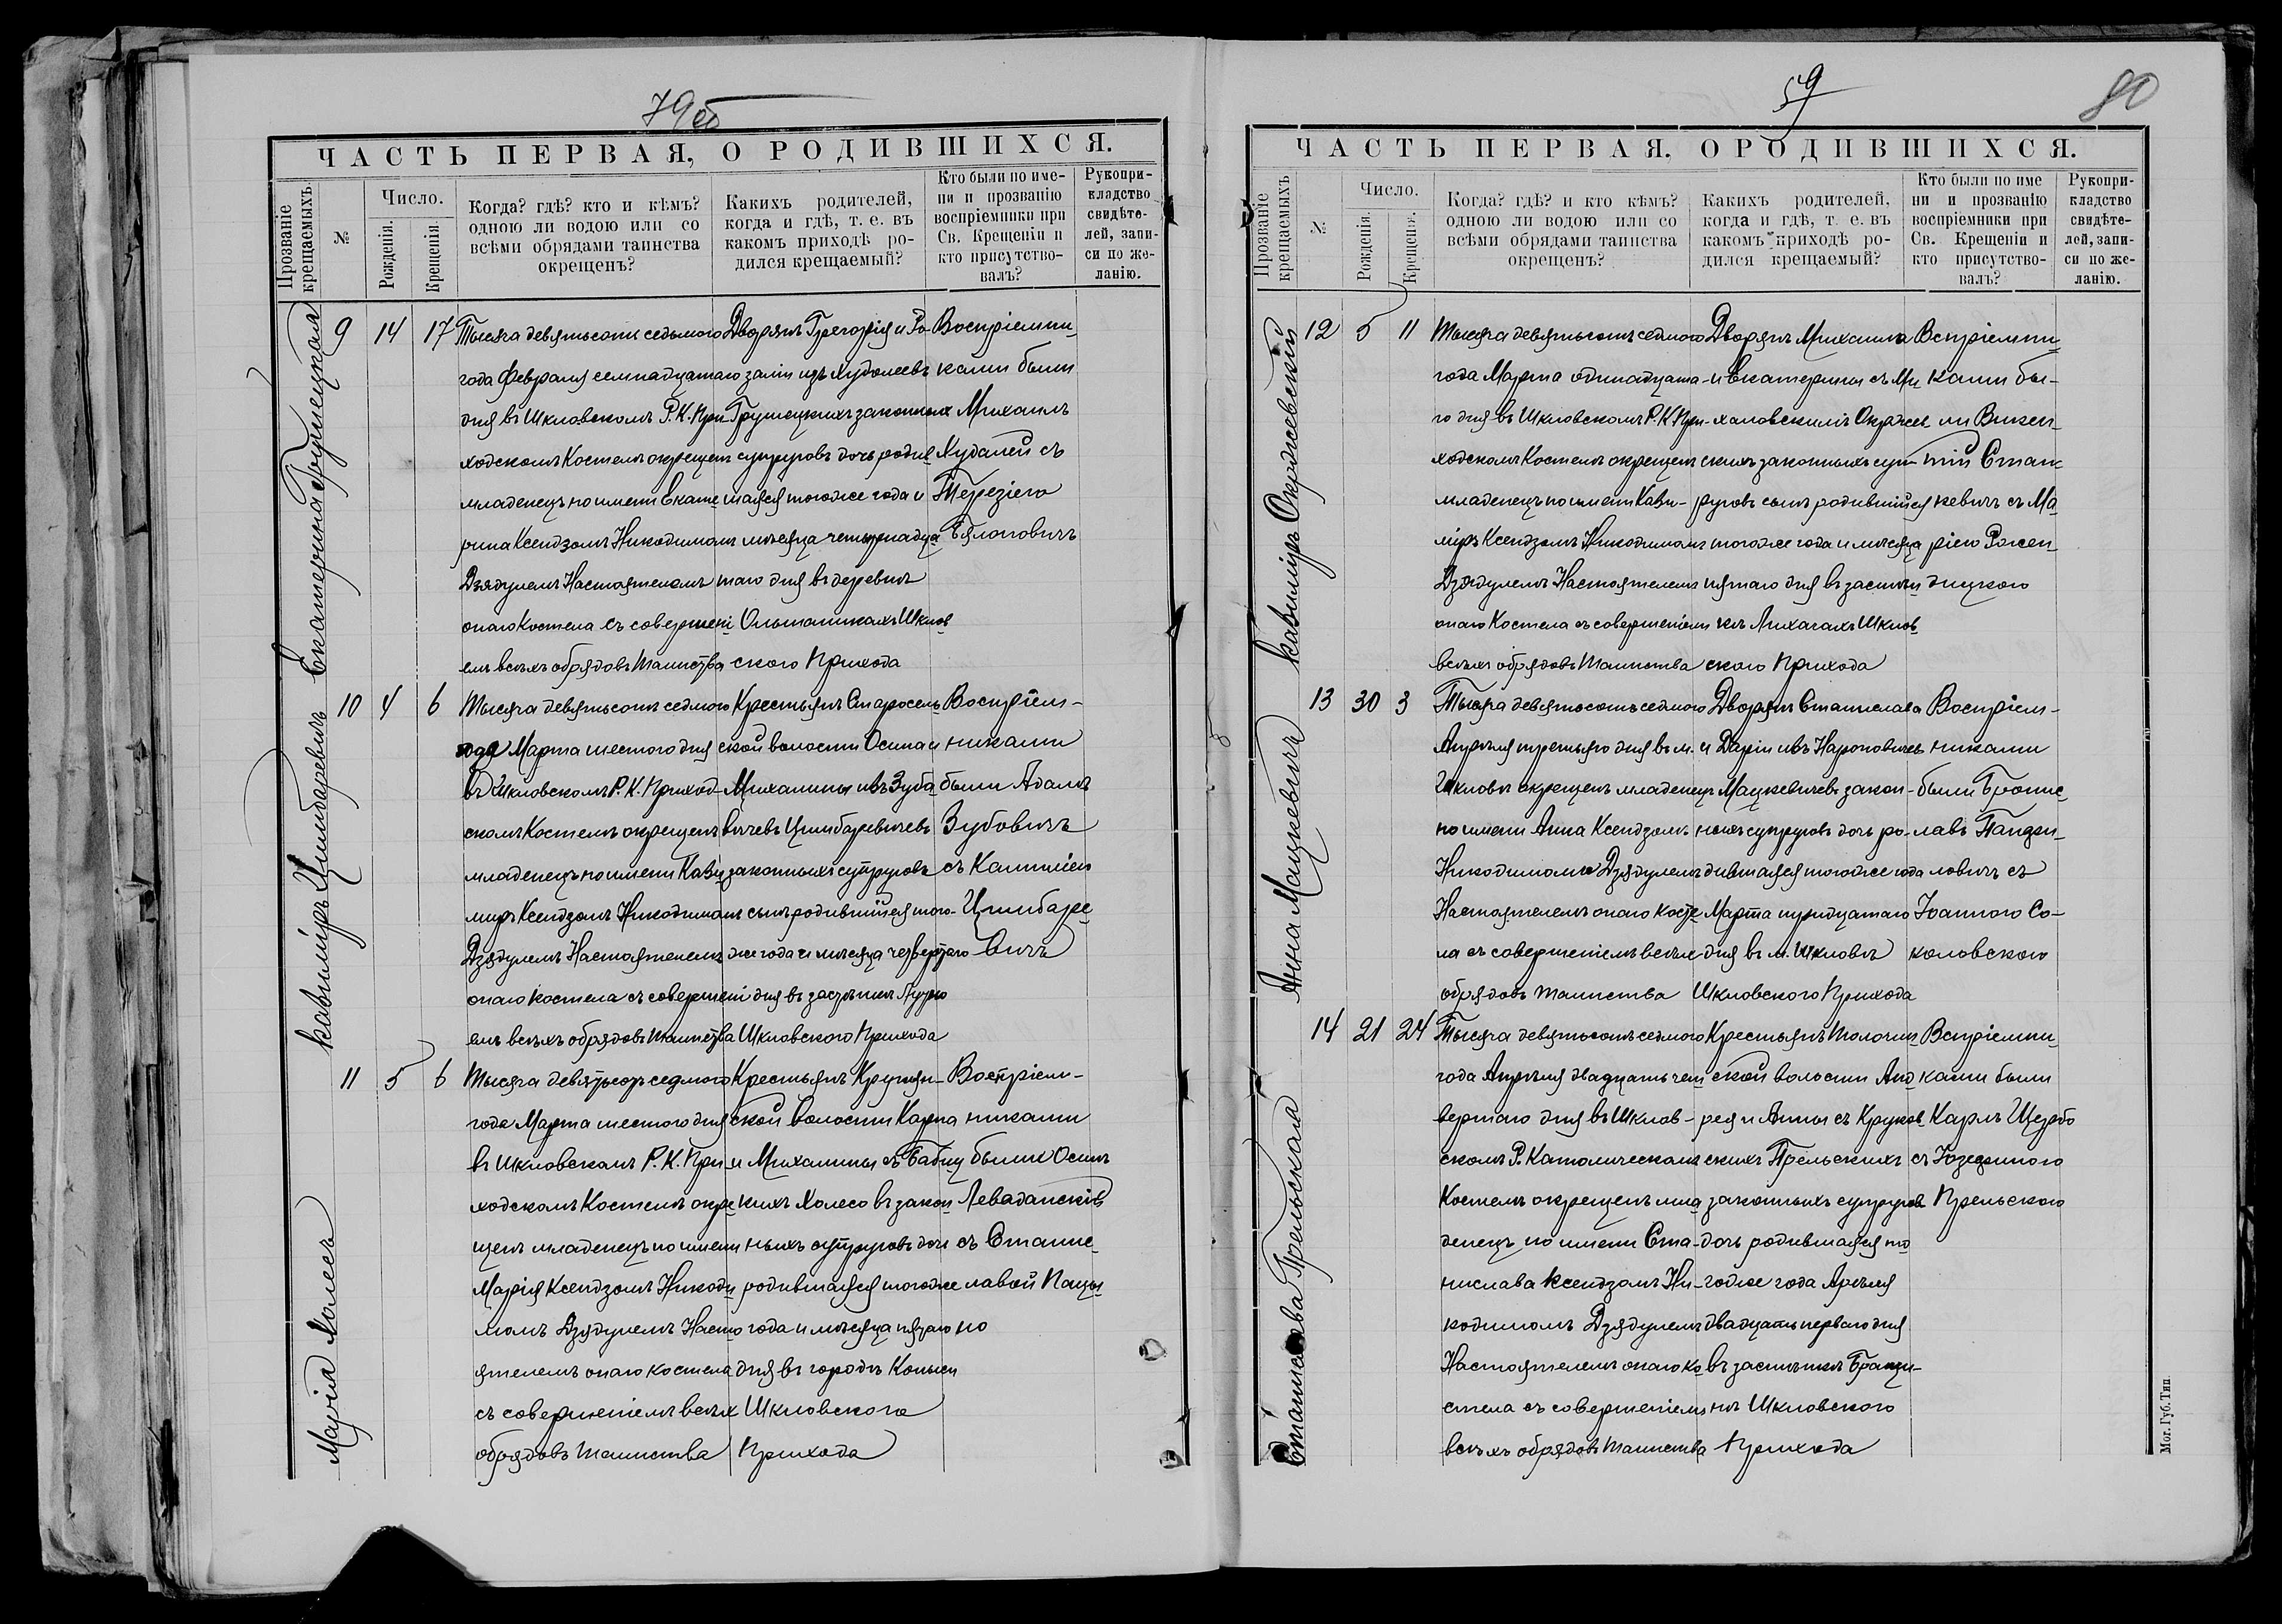 79об
ЧАСТЬ ПЕРВАЯ, О РОДИВШИХСЯ.
Прозваніе крещаемыхъ.
№
Число.
Рожденія.
Крещенія.
Когда? гдѣ? кто и кѣмъ?
одною ли водою или со
всѣми обрядами таинства
окрещенъ?
Какихъ родителей,
когда и гдѣ, т. е. въ
какомъ приходѣ ро-
дился крещаемый?
Кто были по име-
ни и прозванію
воспріемники при
Св. Крещеніи и
кто присутство-
валъ?
Рукопри-
кладство
свидѣте-
лей, запи-
си по же-
ланію.
Екатерина Грушецкая
9 14 17
Тысяча девятьсотъ седьмого
года Февраля семнадцатаго
дня въ Шкловскомъ Р. К. При
ходскомъ Костелѣ окрещенъ
младенецъ по имени Екате
рина Ксендзомъ Никодимомъ
Дзядулемъ Настоятелемъ
онаго Костела съ совершені
емъ всѣхъ обрядовъ Таинства
Дворянъ Григорія и Ро
заліи изъ Худолеевъ
Грушецкихъ законныхъ
супруговъ дочь родив
шаяся тогоже года и
мѣсяца четырнадца
таго дня въ деревнѣ
Ольшаникахъ Шклов
ского Прихода
Воспріемни
ками были
Михаилъ
Худалей съ
Терезіею
Казиміръ Цимбаревичъ
10 4 6
Тысяча девятьсотъ седмого
года Марта шестого дня
въ Шкловскомъ Р. К. Приход-
скомъ Костелѣ окрещенъ
младенецъ по имени Кази
миръ Ксендзомъ Никодимомъ
Дзядулемъ Настоятелемъ
онаго костела съ совершені
емъ всѣхъ обрядовъ таинства
Крестьянъ Старосель
ской волости Осипа и
Михалины изъ Зубо
вичевъ Цимбаревичевъ
законныхъ супруговъ
сынъ родившійся того-
же года и мѣсяца четвертаго
дня въ застѣнкѣ
Шкловского Прихода
Воспріем-
никами
были Адамъ
Зубовичъ
съ Камиліею
Цимбаре
вичъ
Марія Холесъ
11 5 6
Тысяча девятьсотъ седмого
года Марта шестого дня
въ Шкловскомъ Р. К. При
ходскомъ Костелѣ окре
щенъ младенецъ по имени
Марія Ксендзомъ Никоди
момъ Дзядулемъ Насто
ятелемъ онаго костела
съ совершеніемъ всѣхъ
обрядовъ таинства
Крестьянъ Круглян-
ской волости Карла
и Михалины съ Бабиц
кихъ Холесовъ закон
ныхъ супруговъ дочь
родившаяся тогоже
года и мѣсяца пятаго
дня въ городѣ Копыси
Шкловского
Прихода
Воспріем-
никами
были Осипъ
съ Станис
лавой
59
80
ЧАСТЬ ПЕРВАЯ. О РОДИВШИХСЯ.
Прозваніе крещаемыхъ
№
Число.
Рожденія.
Крещенія.
Когда? гдѣ? и кто кѣмъ?
одною ли водою или со
всѣми обрядами таинства
окрещенъ?
Какихъ родителей,
когда и гдѣ, т. е. въ
какомъ приходѣ ро-
дился крещаемый?
Кто были по име
ни и прозванію
воспріемники при
Св. Крещеніи и
кто присутство-
валъ?
Рукопри-
кладство
свидѣте-
лей, запи-
си по же-
ланію.
Казиміръ Окружевскій
12 5 11
Тысяча девятьсотъ седмого
года Марта одинадцата-
го дня въ Шкловскомъ Р. К. При-
ходскомъ Костелѣ окрещенъ
младенецъ по имени Кази-
міръ Ксендзомъ Никодимомъ
Дзядулемъ Настоятелемъ
онаго Костела съ совершеніемъ
всѣхъ обрядовъ таинства
Дворянъ Михаила
и Екатерины съ Ми
халовскихъ Окружев
скихъ законныхъ суп
руговъ сынъ родившійся
тогоже года и мѣсяца
пятаго дня въ застѣн
кѣ Лихачахъ Шклов
ского Прихода
Вспріемни
ками бы-
ли Викен
тій Стан
кевичъ съ Ма
ріею
Анна Мацкевичъ
13 30 3
Тысяча девятьсотъ седмого
Апрѣля третьяго дня въ м.
Шкловѣ окрещенъ младенецъ
по имени Анна Ксендзомъ
Никодимомъ Дзядулемъ
Настоятелемъ онаго косте
ла съ совершеніемъ всѣхъ
обрядовъ таинства
Дворянъ Станислава
и Даріи изъ Нароновичевъ
Мацкевичевъ закон-
ныхъ супруговъ дочь ро-
дившаяся тогоже года
Марта тридцатаго
дня въ м. Шкловѣ
Шкловского Прихода
Воспріем-
никами
были Бронис
лавъ
ловичъ съ
Іоанною Со-
коловского
Станислава Прельская
14 21 24
Тысяча девятьсотъ седмого
года Апрѣля двадцать чет
вертаго дня въ Шклов-
скомъ Р. Католическомъ
Костелѣ окрещенъ мла
денецъ по имени Ста-
нислава Ксендзомъ Ни-
кодимомъ Дзядулемъ
Настоятелемъ онаго ко
стела съ совершеніемъ
всѣхъ обрядовъ таинства
Крестьянъ Толочин
ской волости Анд
рея и Анны съ Круков
скихъ Прельскихъ
законныхъ супруговъ
дочь родившаяся то
гоже года Апрѣля
двадцать перваго дня
въ застѣнкѣ
Шкловского
Прихода
Вспріемни
ками были
Карлъ Щербо
съ Іозефиного
Прельского
Мог. Губ. Тип.